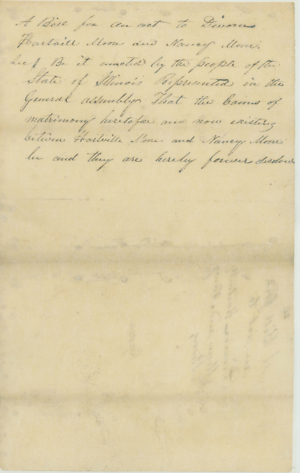 A Bill for an act to Divorce
Hartville Moon and Nancy Moon
Sec 1 Be it enacted by the people of the
State of Illinois Represented in the
General assembly That the bonds of
matrimony heretofore and now existing
between Hartville Moon and Nancy Moon
be and they are hereby forever dissolved